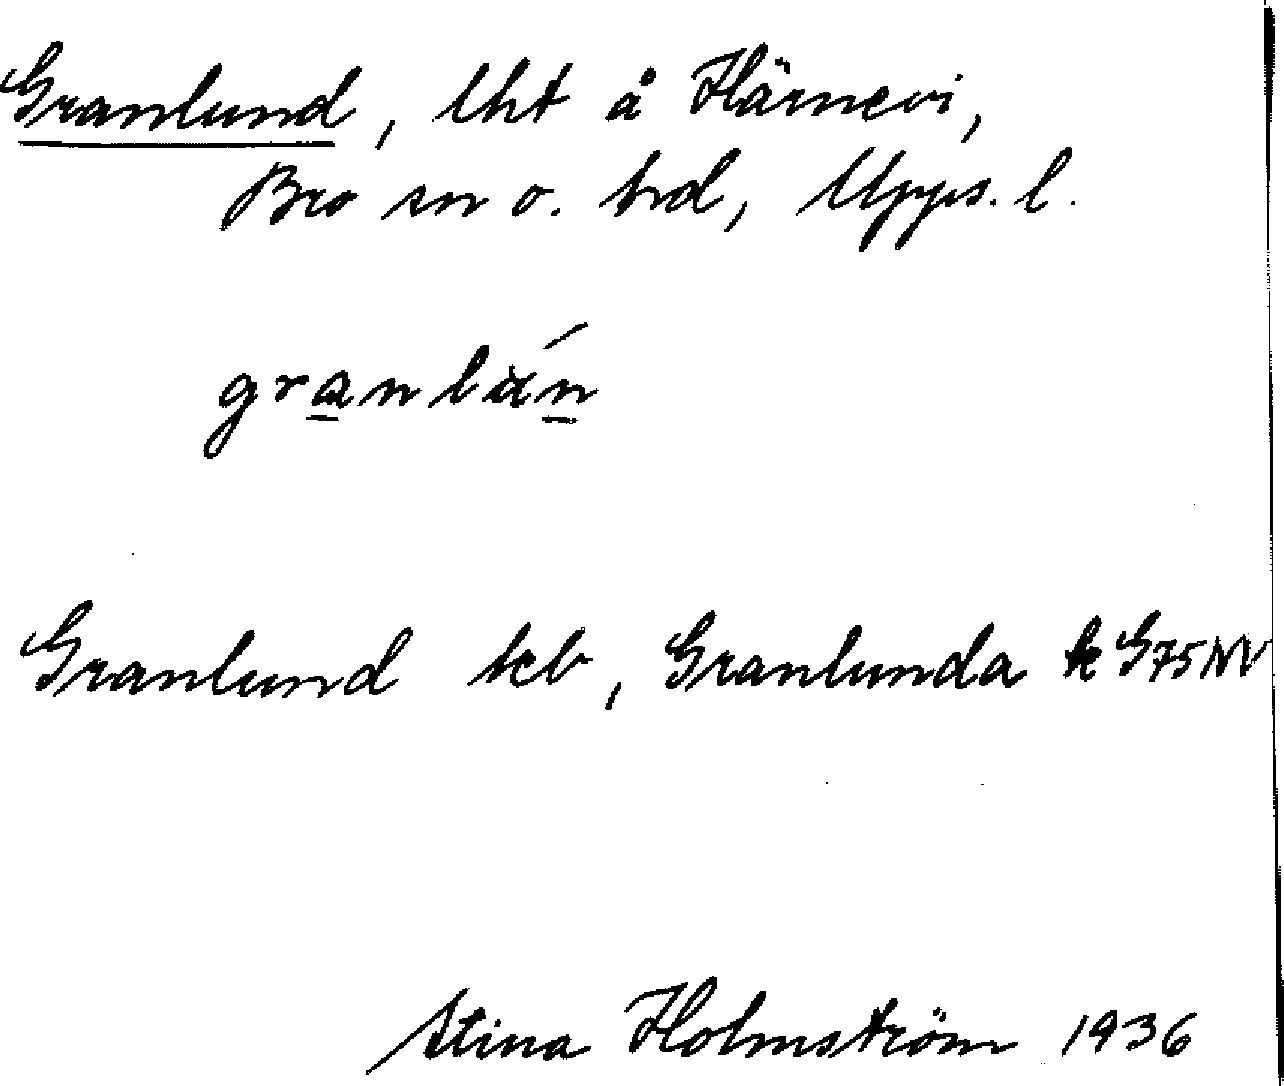 Granlund, lht å Härnevi,
Bro sn o. hd, Upps. l.
granlán
Granlund jeb, Granlunda k G 75 NV
Stina Holmström 1936